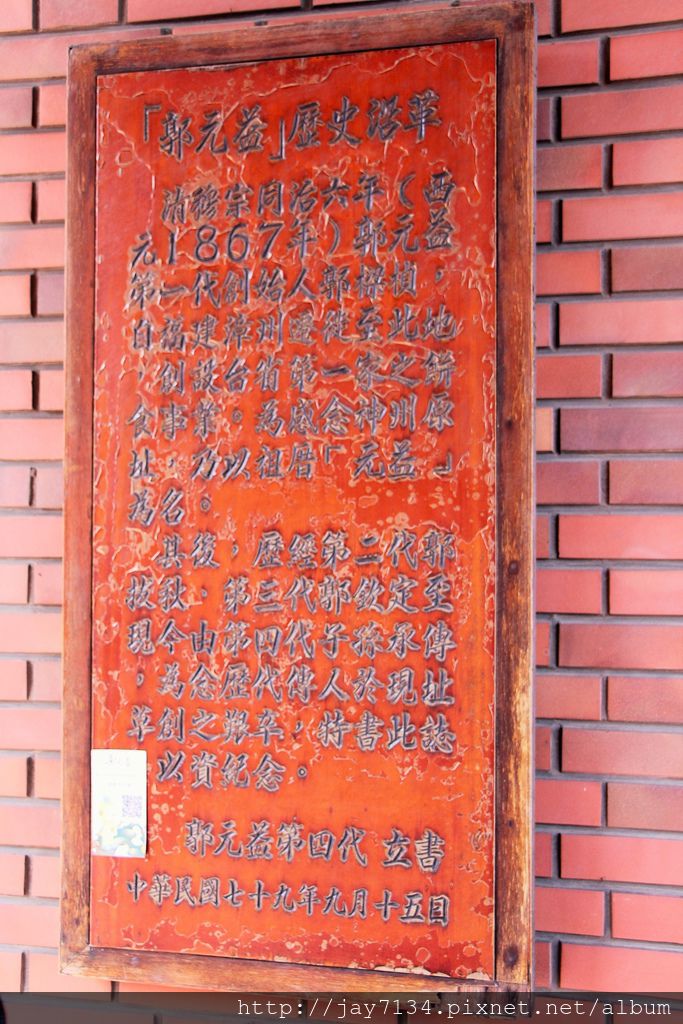 「郭元益」歷史沿革
清穆宗同治六年（西
元1867年）郭元益，
第一代創始人郭樑楨
自福建漳州遷徙至此地
，創設台省第一家之餅
食事業。為感念神州原
址，乃以祖厝「元益」
為名。
其後，歷經第二代郭
拔、第三代郭欽定至
現今由第四代子孫承傳
，為念歷代傳人於現址
草創之艱辛，特書此誌
以資紀念。
郭元益第四代 立書
中華民國七十九年九月十五日
http://jay7134.pixnet.net/album